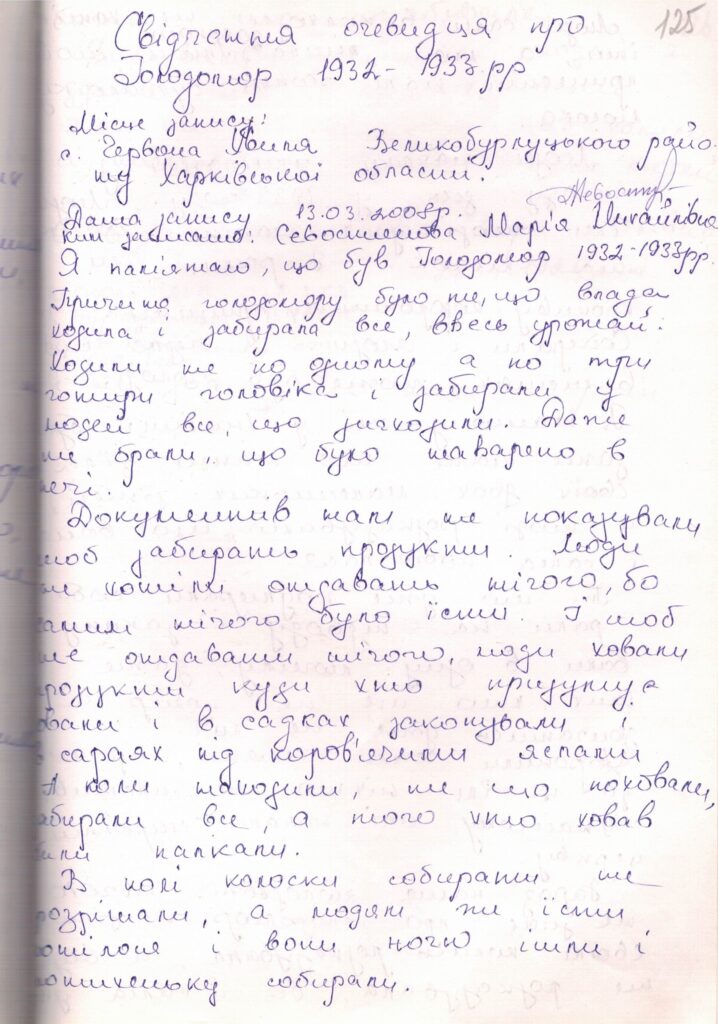 125
Свідчення очевидця про
Голодомор 1932-1933 рр
Місце запису:
с. Червона Хвиля Великобурлуцького райо-
ну Харківської області.
Дата запису 13.03.2008р.
Ким записано: Севостьянова Марія Михайлівна
Я пам'ятаю, що був Голодомор 1932-1933рр.
Причина голодомору було те, що влада
ходила і забирала все, ввесь урожай.
Ходили не по одному а по три
чотири чоловіка і забирали у
людей все, що знаходили. Даже
те брали, що було наварено в
печі.
Документів нам не показували
щоб забирать продукти. Люди
не хотіли отдавать нічого, бо
самим нічого було їсти. І щоб
не отдавати нічого, люди ховали
продукти куди хто придумає
ховали і в садках закопували і
в сараях під коров'ячими яслами
А коли находили, те що поховали,
забирали все, а того хто ховав
били палками.
В полі колоски собирати не
розрішали, а людям же їсти
хотілося і вони ночю ішли і
потихеньку собирали.